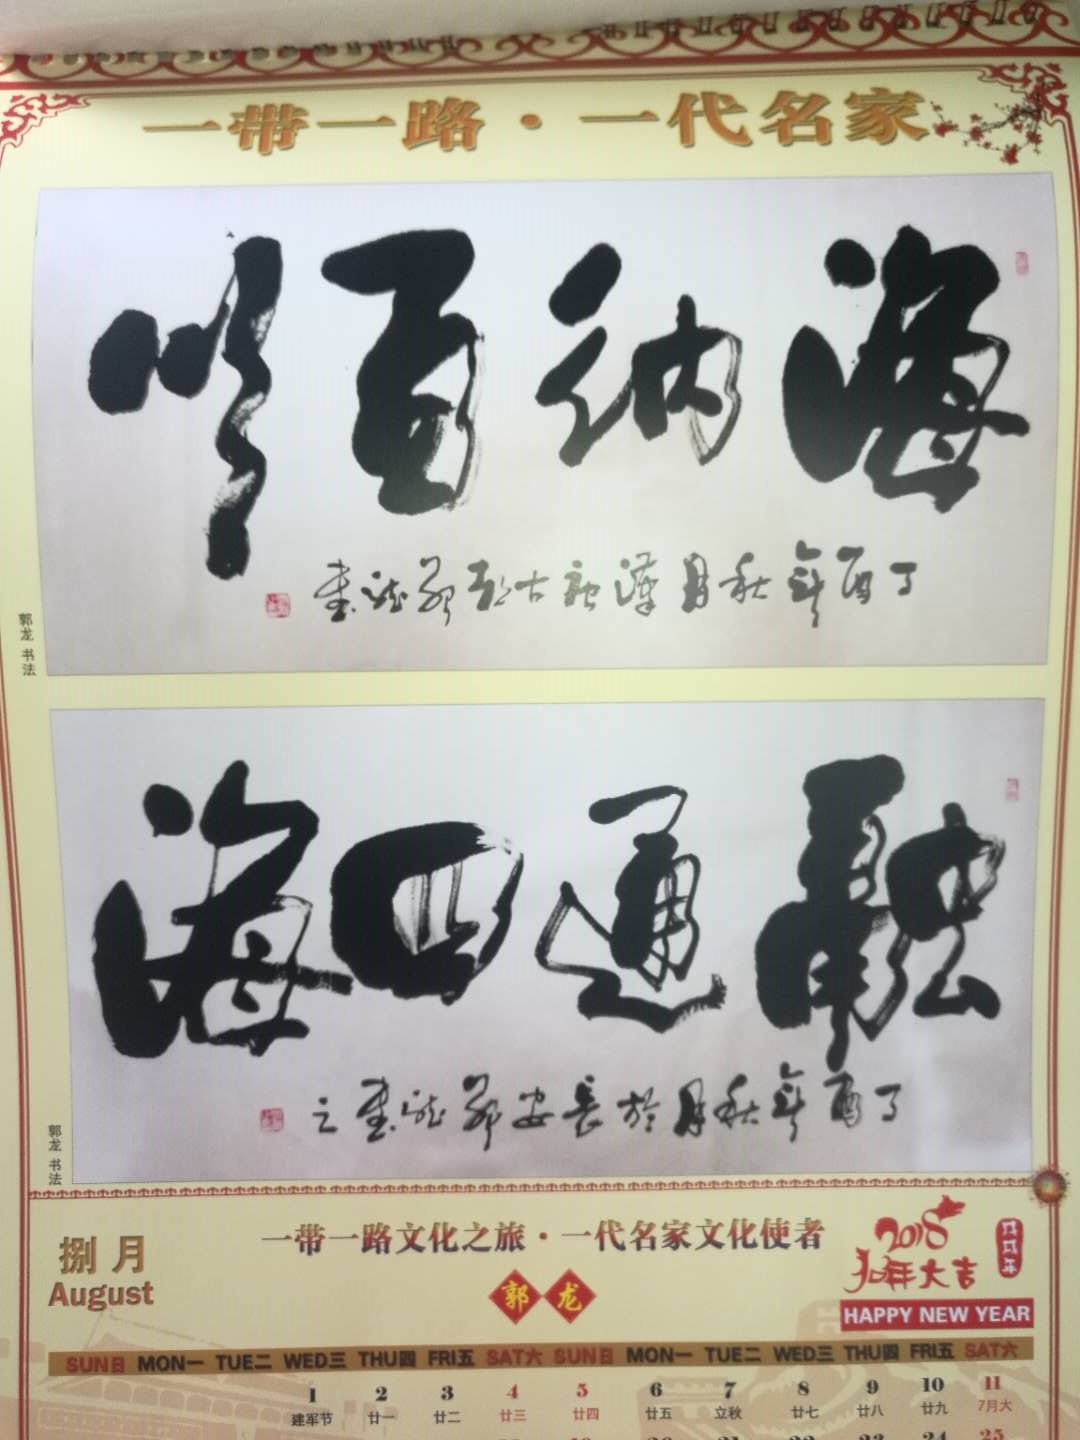 一带一路·一代名家
海纳百川
丁酉年秋月漢古郭龍書
郭龙 书法
融通四海
丁酉年秋月於長安郭龍書之
郭龙 书法
捌月
August
一带一路文化之旅·一代名家文化使者
郭龙
2018
狗年大吉
HAPPY NEW YEAR
SUN日 MON一 TUE二 WED三 THU四 FRI五 SAT六 SUN日 MON一 TUE二 WED三 THU四 FRI五 SAT六
1 2 3 4 5 6 7 8 9 10 11
建军节 廿一 廿二 廿三 廿四 廿五 立秋 廿七 廿八 廿九 7月大